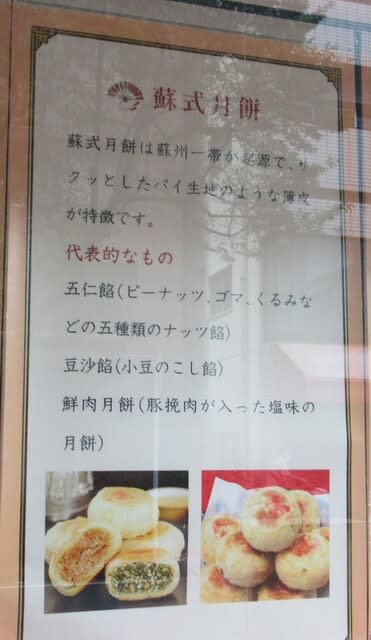 蘇式月餅
蘇式月餅は蘇州一帯が起源で、サ
クッとしたパイ生地のような薄皮
が特徴です。
代表的なもの
五仁餡(ピーナッツ、ゴマ、くるみな
どの五種類のナッツ餡)
豆沙餡(小豆のこし餡)
鮮肉月餅(豚挽肉が入った塩味の
月餅)